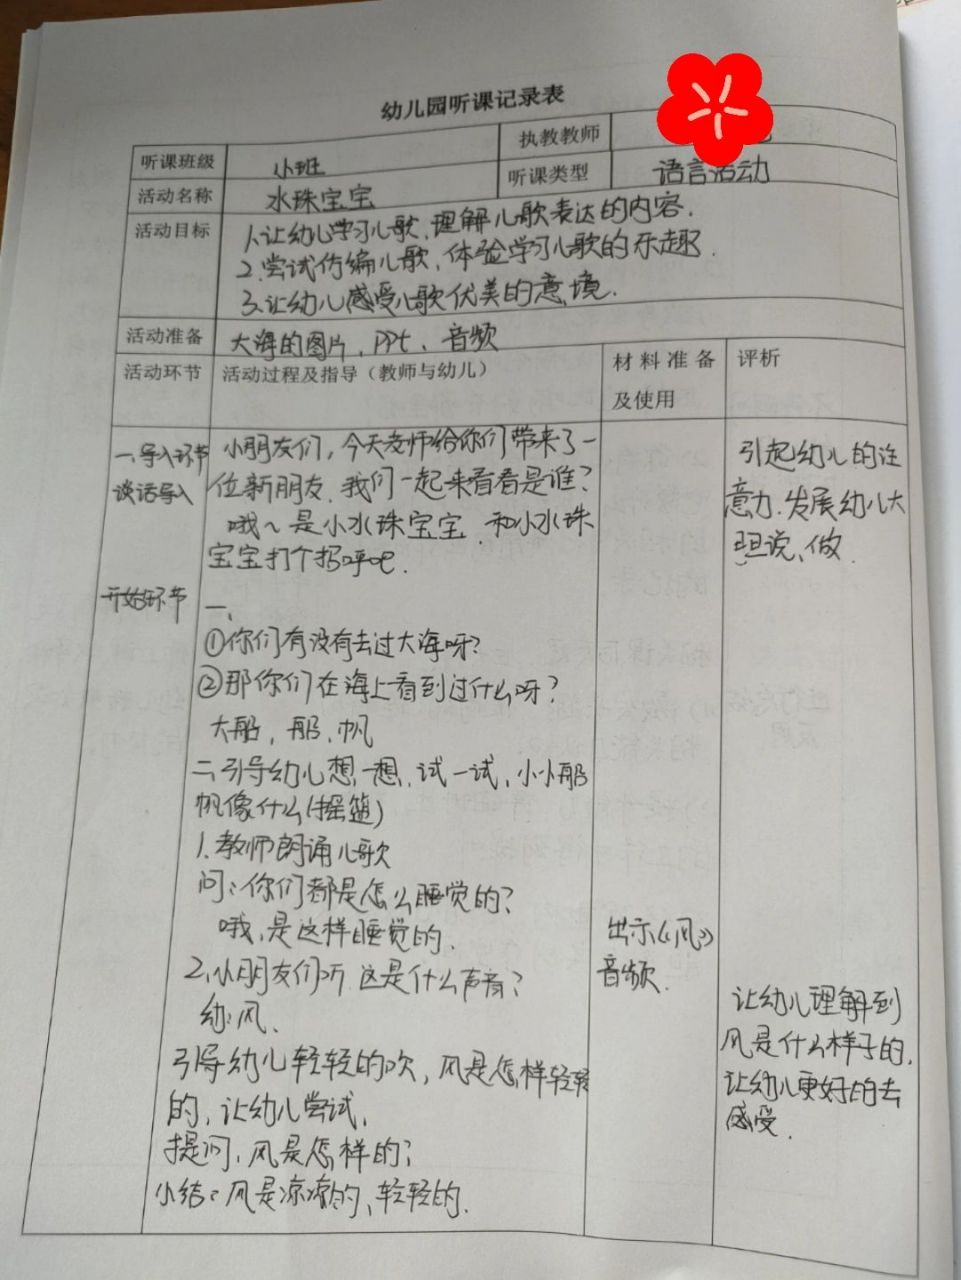 幼儿园听课记录表
听课班级 小班 执教教师
活动名称 水珠宝宝 听课类型 语言活动
活动目标 1.让幼儿学习儿歌,理解儿歌表达的内容.
2.尝试仿编儿歌,体验学习儿歌的乐趣.
3.让幼儿感受儿歌优美的意境.
活动准备 大海的图片,PPt、音频
活动环节 活动过程及指导(教师与幼儿) 材料准备及使用 评析
一、导入环节
谈话导入
小朋友们,今天老师给你们带来了一
位新朋友.我们一起来看看是谁?
哦~是小水珠宝宝.和小水珠
宝宝打个招呼吧.
引起幼儿的注
意力.发展幼儿大
胆说、做.
开始环节
一、
①你们有没有去过大海呀?
②那你们在海上看到过什么呀?
大船,船、帆
二、引导幼儿想一想,试一试,小小船
帆像什么(摇篮)
1.教师朗诵儿歌
问:你们都是怎么睡觉的?
哦,是这样睡觉的.
2.小朋友们听 这是什么声音?
幼:风、
引导幼儿轻轻的吹,风是怎样轻轻
的,让幼儿尝试,
提问,风是怎样的;
小结:风是凉凉的、轻轻的.
出示《风》
音频.
让幼儿理解到
风是什么样子的,
让幼儿更好的去
感受.